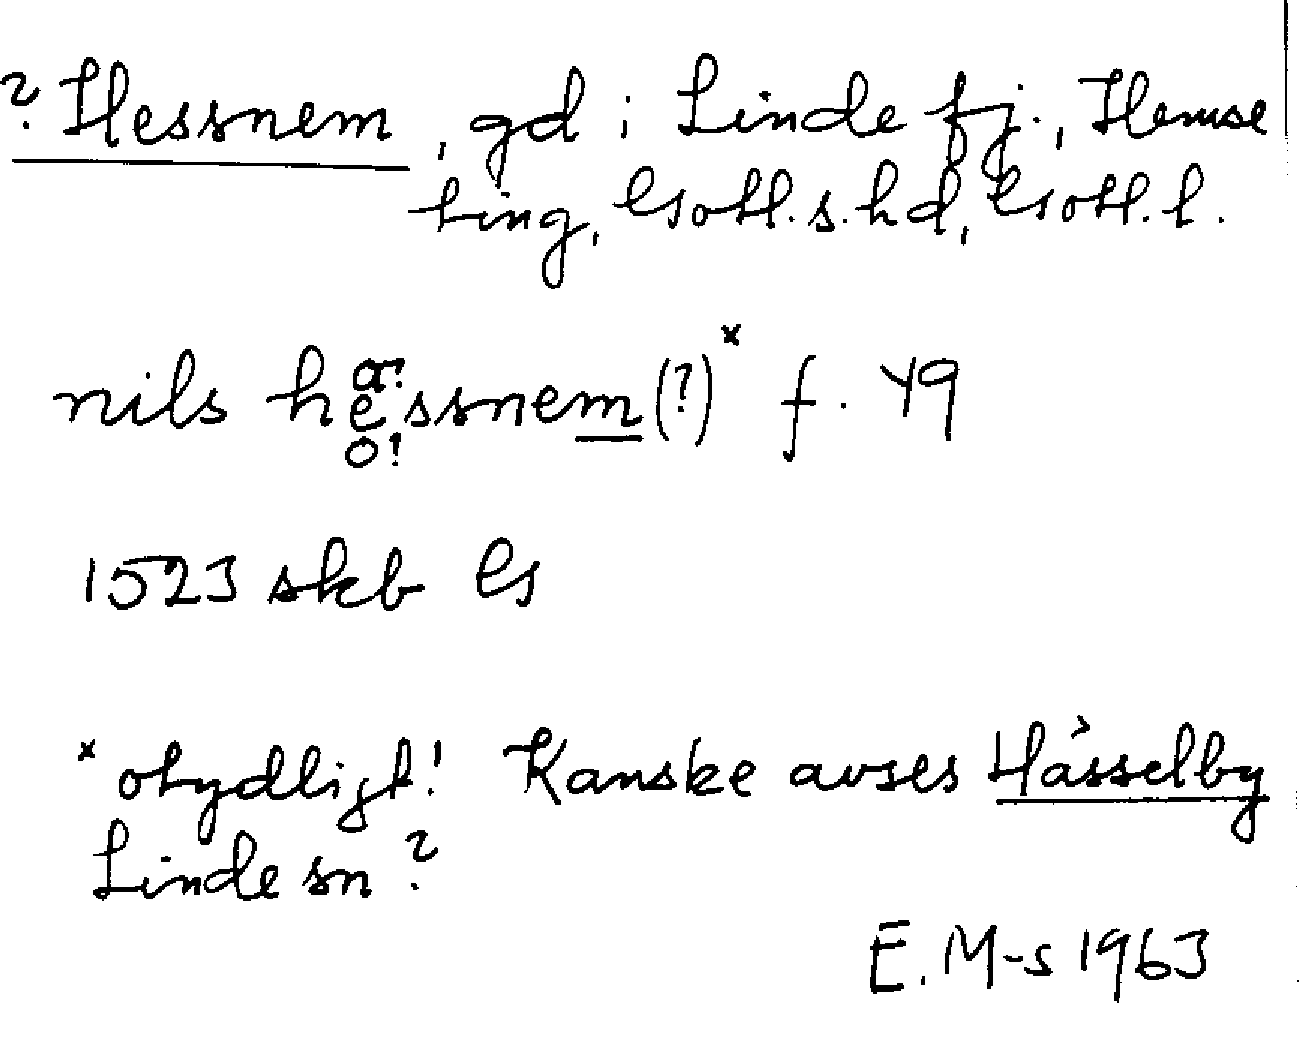 ? Hessnem, gd i Linde fj., Hemse
ting, Gotl. s. hd, Gotl. l.
a?
nils hessnem(?)x f. 49
o!
1523 skb G
x otydligt! Kanske avses Hässelby
Linde sn?
E. M-s 1963